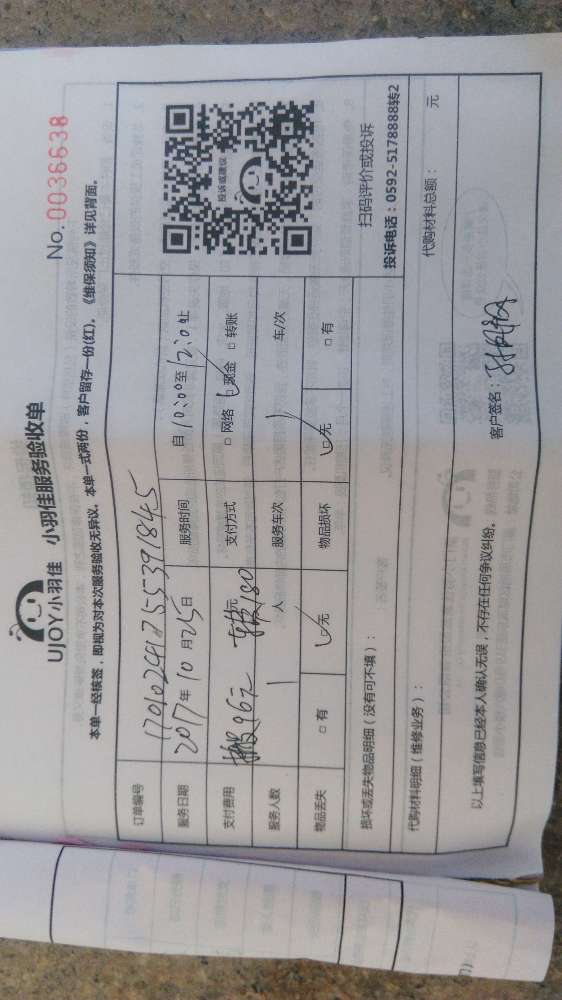 UJOY小羽佳 小羽佳服务验收单
No. 0036638
本单一经核签，即视为对本次服务验收无异议，本单一式两份，客户留存一份(红)。《维保须知》详见背面。
订单编号
服务日期 2017年10月25日 服务时间 自10:00至12:0止
支付费用 96元 180元 支付方式 □ 网络 ☑ 现金 □ 转账
服务人数 1 人 服务车次 1 车/次
物品丢失 □ 有 ☑ 无 物品损坏 ☑ 无 □ 有
投诉或建议
扫码评价或投诉
投诉电话：0592-5178888转2
损坏或丢失物品明细（没有可不填）：
代购材料明细（维修业务）： 代购材料总额： 元
以上填写信息已经本人确认无误，不存在任何争议纠纷。 客户签名：